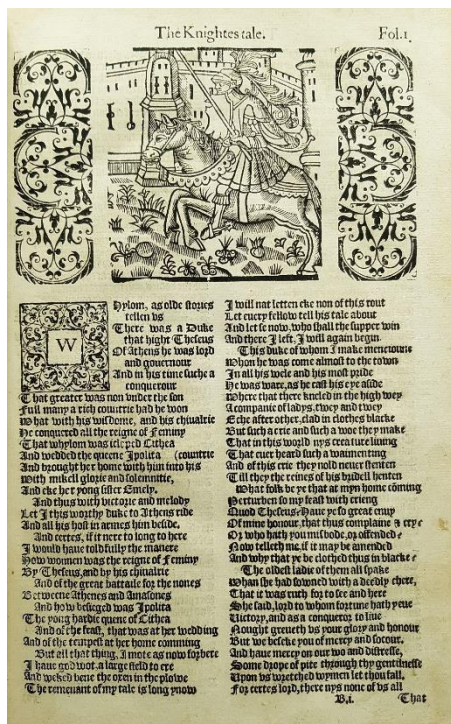 The Knightes tale. Fol.1.
W
Hylom, as olde stories
tellen vs
There was a Duke
that hight Theseus
Of Athens he was lord
and gouernour
And in his time suche a
conquerour
That greater was non vnder the son
Full many a rich countrie had he won
What with his wisdome, and his chiualrie
He conquered all the reigne of Feminy
That whylom was icleped Cithea
And wedded the queene Ipolita (countrie
And brought her home with him into his
With mukell glorie and solemnitie,
And eke her yong sister Emely.
And thus with victorie and melody
Let I this worthy duke to Athens ride
And all his host in armes him beside,
And certes, if it nere to long to here
I would haue told fully the manere
How women was the reigne of Feminy
By Theseus, and by his chiualrie
And of the great battaile for the nones
Betweene Athenes and Amasones
And how besieged was Ipolita
The yong hardie quene of Cithea
And of the feast, that was at her wedding
And of the tempest at her home comming
But all that thing, I mote as now forbere
I haue god wot, a large field to ere
And weked bene the oxen in the plowe
The remenant of my tale is long ynow
I will nat letten eke non of this rout
Let euery fellow tell his tale about
And let se now, who shall the supper win
And there I left, I will again begin.
This duke of whom I make mencioune
Whon he was come almost to the town
In all his wele and his most pride
He was ware, as he cast his eye aside
Where that there kneled in the high wey
A companie of ladys, twey and twey
Eche after other, clad in clothes blacke
But such a crie and such a woe they make
That in this world nys creature liuing
That euer heard such a waimenting
And of this crie they nold neuer stenten
Till they the reines of his bridell henten
What folk be ye that at myn home cõming
Perturben so my feast with crieng
Quod Theseus: Haue ye so great enuy
Of mine honour, that thus complaine & crye
Or who hath you misbode, or offended
Now telleth me, if it may be amended
And why that ye be clothed thus in blacke
The oldest ladie of them all spake
Whan she had sowned with a deedly chere,
That it was ruth for to see and here
She said, lord to whom fortune hath yeue
Victory, and as a conqueror to liue
Nought greueth vs your glory and honour
But we beseke you of mercy and socour.
And haue mercy on our wo and distresse,
Some drope of pite through thy gentilnesse
Upon vs wretched wymen let thou fall,
For certes lord, there nys none of vs all
B.i. That